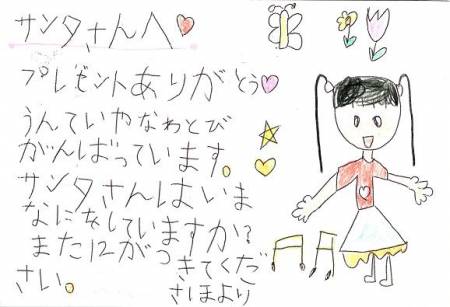 サンタさんへ
プレゼントありがとう
うんていやなわとび
がんばっています。
サンタさんはいま
なにをしていますか?
また12がつ
きてくだ
さい。
さほより